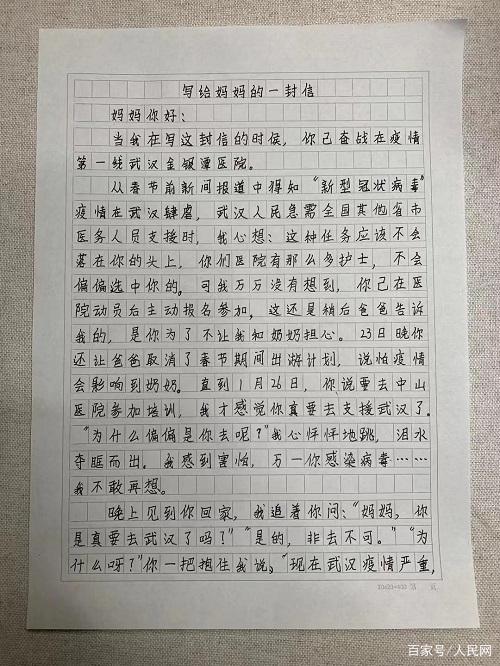 写给妈妈的一封信
妈妈你好：
当我在写这封信的时候，你已奋战在疫情
第一线武汉金银潭医院。
从春节前新闻报道中得知“新型冠状病毒”
疫情在武汉肆虐，武汉人民急需全国其他省市
医务人员支援时，我心想：这种任务应该不会
落在你的头上，你们医院有那么多护士，不会
偏偏选中你的。可我万万没有想到，你已在医
院动员后主动报名参加，这还是稍后爸爸告诉
我的，是你为了不让我和奶奶担心。23日晚你
还让爸爸取消了春节期间出游计划，说怕疫情
会影响到奶奶。直到1月26日，你说要去中山
医院参加培训，我才感觉你真要去支援武汉了。
“为什么偏偏是你去呢？”我心怦怦地跳，泪水
夺眶而出。我感到害怕，万一你感染病毒……
我不敢再想。
晚上见到你回家，我追着你问：“妈妈，你
是真要去武汉了吗？”“是的，非去不可。”“为
什么呀？”你一把抱住我说：“现在武汉疫情严重，
20×20=400 第 页
百家号/人民网